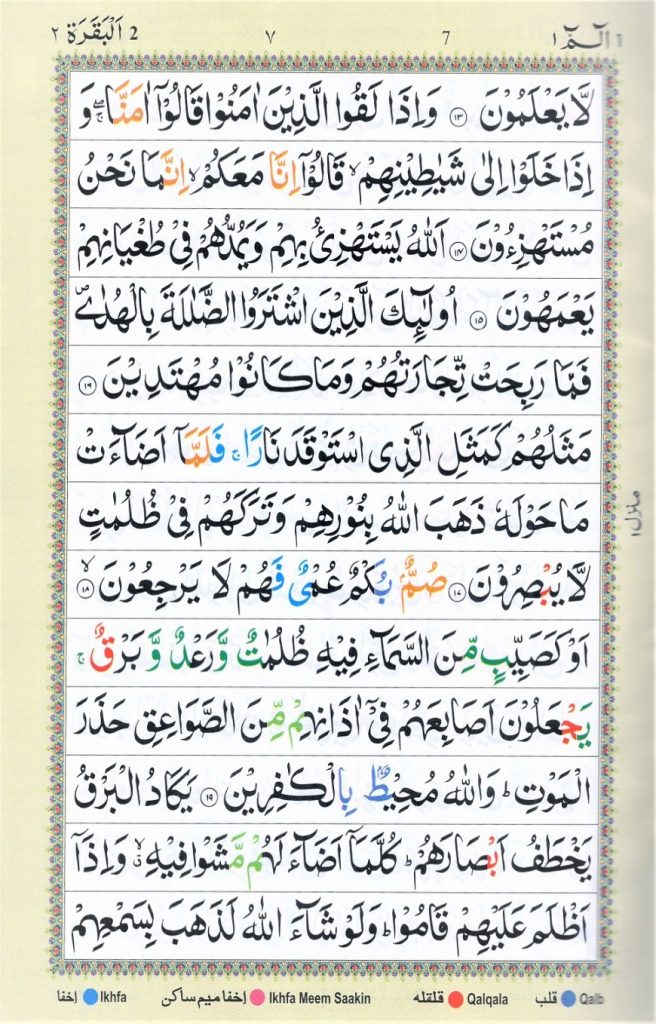 الٓمّٓ ١ ٧ 7 اَلْبَقَرَة ٢ 2
لَّا يَعْلَمُوْنَ ۝١٣ وَاِذَا لَقُوا الَّذِيْنَ اٰمَنُوْا قَالُوْٓا اٰمَنَّا ۖۚ وَ
اِذَا خَلَوْا اِلٰى شَيٰطِيْنِهِمْ ۙ قَالُوْٓا اِنَّا مَعَكُمْ ۙ اِنَّمَا نَحْنُ
مُسْتَهْزِءُوْنَ ۝١٤ اَللّٰهُ يَسْتَهْزِئُ بِهِمْ وَيَمُدُّهُمْ فِيْ طُغْيَانِهِمْ
يَعْمَهُوْنَ ۝١٥ اُولٰٓئِكَ الَّذِيْنَ اشْتَرَوُا الضَّلٰلَةَ بِالْهُدٰى ۪
فَمَا رَبِحَتْ تِّجَارَتُهُمْ وَمَا كَانُوْا مُهْتَدِيْنَ ۝١٦
مَثَلُهُمْ كَمَثَلِ الَّذِى اسْتَوْقَدَ نَارًا ۚ فَلَمَّآ اَضَآءَتْ
مَا حَوْلَهٗ ذَهَبَ اللّٰهُ بِنُوْرِهِمْ وَتَرَكَهُمْ فِيْ ظُلُمٰتٍ
لَّا يُبْصِرُوْنَ ۝١٧ صُمٌّۢ بُكْمٌ عُمْيٌ فَهُمْ لَا يَرْجِعُوْنَ ۙ۝١٨
اَوْ كَصَيِّبٍ مِّنَ السَّمَآءِ فِيْهِ ظُلُمٰتٌ وَّرَعْدٌ وَّبَرْقٌ ۚ
يَجْعَلُوْنَ اَصَابِعَهُمْ فِيْٓ اٰذَانِهِمْ مِّنَ الصَّوَاعِقِ حَذَرَ
الْمَوْتِ ؕ وَاللّٰهُ مُحِيْطٌۢ بِالْكٰفِرِيْنَ ۝١٩ يَكَادُ الْبَرْقُ
يَخْطَفُ اَبْصَارَهُمْ ؕ كُلَّمَآ اَضَآءَ لَهُمْ مَّشَوْا فِيْهِ ۙۗ وَاِذَآ
اَظْلَمَ عَلَيْهِمْ قَامُوْا ؕ وَلَوْ شَآءَ اللّٰهُ لَذَهَبَ بِسَمْعِهِمْ
منزل ١
اِخفا Ikhfa اِخفا ميم ساكن Ikhfa Meem Saakin قلقله Qalqala قلب Qalb